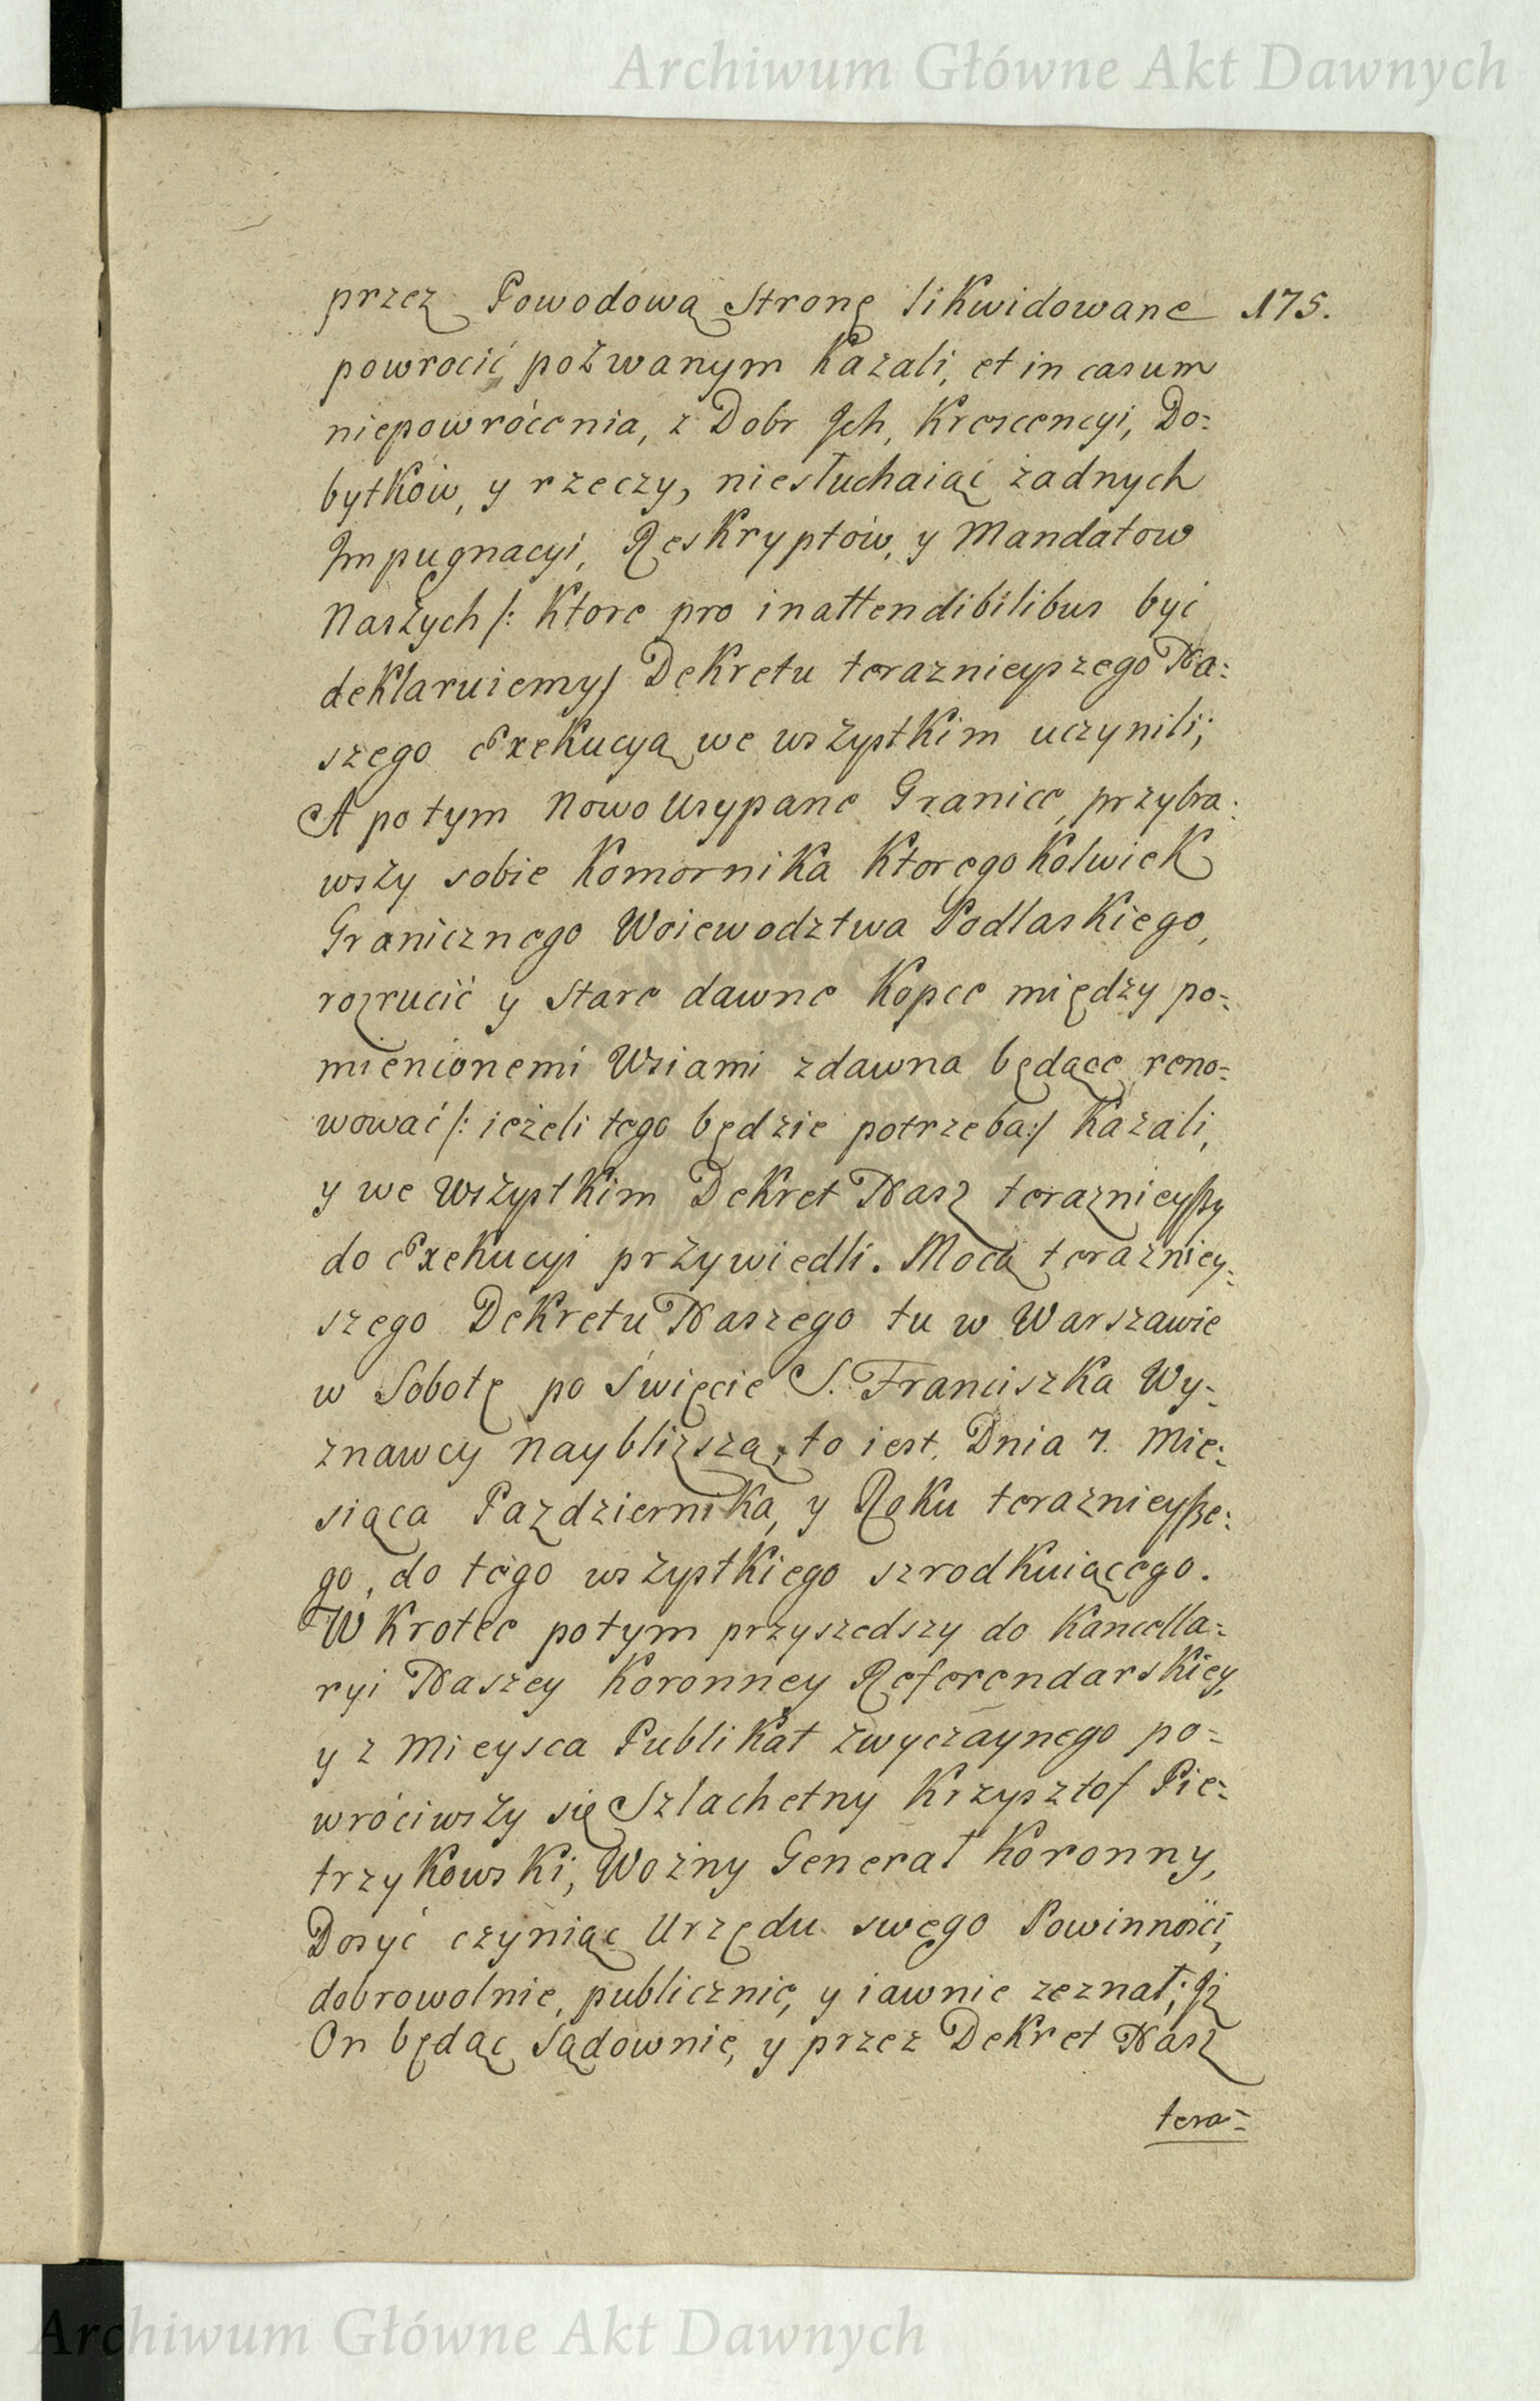 Archiwum Główne Akt Dawnych
przez Powodową Stronę likwidowane 175.
powrocić pozwanym kazali, et in casum
niepowrócenia, z Dobr Jch, Krescencyi, Do=
bytków, y rzeczy, niesłuchaiąc żadnych
Jmpugnacyi, Reskryptów, y Mandatow
Naszych /: ktore pro inattendibilibus być
deklaruiemy/ Dekretu teraznieyszego Na=
szego Exekucyą we wszystkim uczynili;
A potym nowo usypane Granice, przybra=
wszy sobie Komornika ktoregokolwiek
Granicznego Woiewodztwa Podlaskiego,
rozrucić y stare dawne kopce między po=
mienionemi Wsiami zdawna będące reno=
wować /: ieżeli tego będzie potrzeba:/ kazali,
y we wszystkim Dekret Nasz teraznieyszy
do Exekucyi przywiedli. Mocą teraźniey=
szego Dekretu Naszego tu w Warszawie
w Sobotę po Święcie S. Franciszka Wy=
znawcy naybliższą, to iest, Dnia 7. Mie=
siąca Pazdziernika, y Roku teraznieysze=
go, do tego wszystkiego szrodkuiącego.
W krotce potym przyszedszy do Kancella=
ryi Naszey Koronney Referendarskiey,
y z Mieysca Publikat zwyczaynego po=
wróciwszy się Szlachetny Krzysztof Pie=
trzykowski, Wozny Generał Koronny,
Dosyć czyniąc Urzędu swego Powinności,
dobrowolnie, publicznie, y iawnie zeznał; Jż
On będąc Sądownie, y przez Dekret Nasz
tera=
Archiwum Główne Akt Dawnych